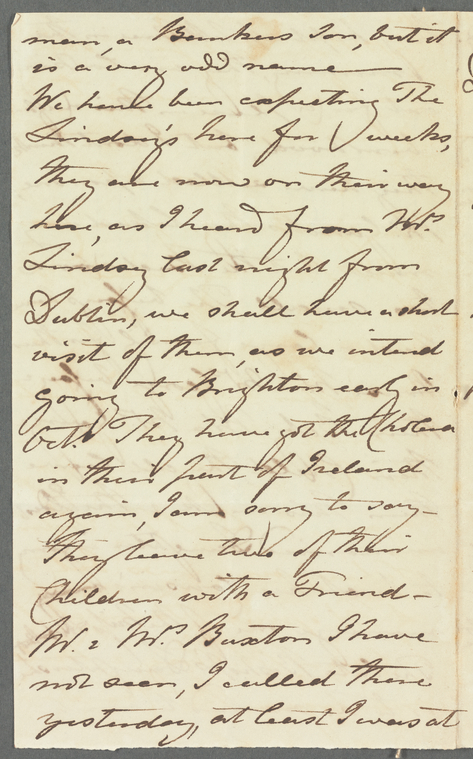 man, a Bankers Son, but it
is a very odd name —
We have been expecting The
Lindsay's here for weeks,
they are now on their way
here, as I heard from Mrs.
Lindsay last night from
Dublin, we shall have a short
visit of them, as we intend
going to Brighton early in
Octr. They have got the Cholera
in their part of Ireland
again, I am sorry to say —
They leave two of their
Children with a Friend —
Mr. & Mrs. Buxton I have
not seen, I called there
yesterday, at least I was at